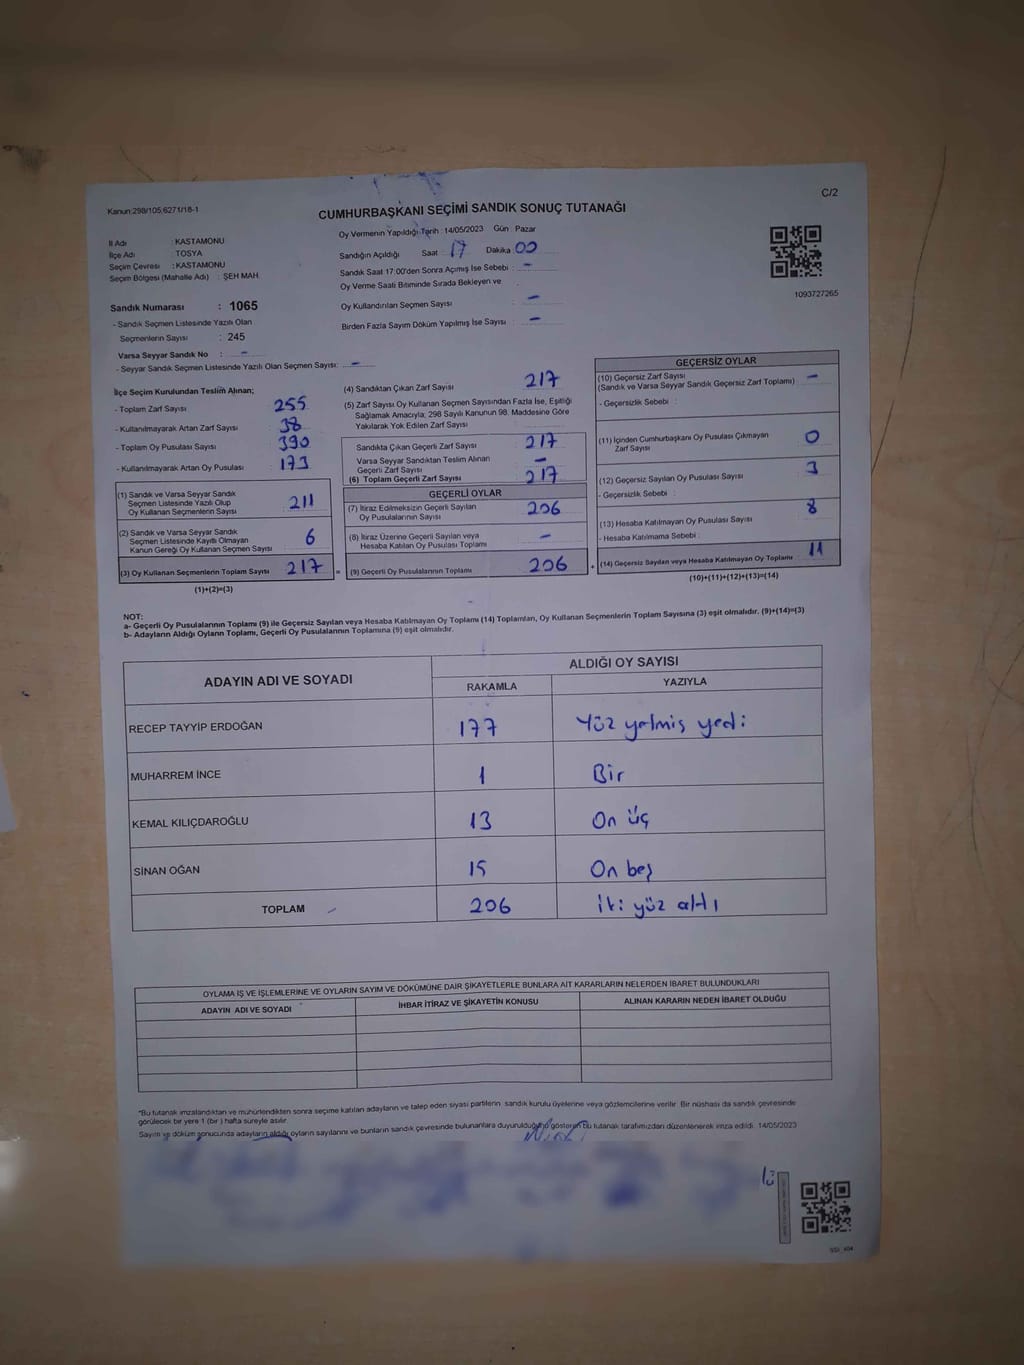 Kanun:298/105,6271/18-1
C/2
CUMHURBAŞKANI SEÇİMİ SANDIK SONUÇ TUTANAĞI
İl Adı : KASTAMONU
İlçe Adı : TOSYA
Seçim Çevresi : KASTAMONU
Seçim Bölgesi (Mahalle Adı) : ŞEH MAH.
Sandık Numarası : 1065
- Sandık Seçmen Listesinde Yazılı Olan
Seçmenlerin Sayısı : 245
Varsa Seyyar Sandık No : -
- Seyyar Sandık Seçmen Listesinde Yazılı Olan Seçmen Sayısı: -
Oy Vermenin Yapıldığı Tarih : 14/05/2023 Gün Pazar
Sandığın Açıldığı Saat : 17 Dakika : 00
Sandık Saat 17:00'den Sonra Açımış İse Sebebi : -
Oy Verme Saati Bitiminde Sırada Bekleyen ve
Oy Kullandırılan Seçmen Sayısı : -
Birden Fazla Sayım Döküm Yapılmış İse Sayısı : -
1093727265
İlçe Seçim Kurulundan Teslim Alınan;
- Toplam Zarf Sayısı 255
- Kullanılmayarak Artan Zarf Sayısı 38
- Toplam Oy Pusulası Sayısı 390
- Kullanılmayarak Artan Oy Pusulası 173
(1) Sandık ve Varsa Seyyar Sandık
Seçmen Listesinde Yazılı Olup
Oy Kullanan Seçmenlerin Sayısı 211
(2) Sandık ve Varsa Seyyar Sandık
Seçmen Listesinde Kayıtlı Olmayan
Kanun Gereği Oy Kullanan Seçmen Sayısı 6
(3) Oy Kullanan Seçmenlerin Toplam Sayısı 217 =
(1)+(2)=(3)
(4) Sandıktan Çıkan Zarf Sayısı 217
(5) Zarf Sayısı Oy Kullanan Seçmen Sayısından Fazla İse, Eşitliği
Sağlamak Amacıyla, 298 Sayılı Kanunun 98. Maddesine Göre
Yakılarak Yok Edilen Zarf Sayısı
Sandıkta Çıkan Geçerli Zarf Sayısı 217
Varsa Seyyar Sandıktan Teslim Alınan
Geçerli Zarf Sayısı -
(6) Toplam Geçerli Zarf Sayısı 217
GEÇERLİ OYLAR
(7) İtiraz Edilmeksizin Geçerli Sayılan
Oy Pusulalarının Sayısı 206
(8) İtiraz Üzerine Geçerli Sayılan veya
Hesaba Katılan Oy Pusulası Toplamı -
(9) Geçerli Oy Pusulalarının Toplamı 206 +
GEÇERSİZ OYLAR
(10) Geçersiz Zarf Sayısı -
(Sandık ve Varsa Seyyar Sandık Geçersiz Zarf Toplamı)
- Geçersizlik Sebebi :
(11) İçinden Cumhurbaşkanı Oy Pusulası Çıkmayan
Zarf Sayısı 0
(12) Geçersiz Sayılan Oy Pusulası Sayısı 3
- Geçersizlik Sebebi :
(13) Hesaba Katılmayan Oy Pusulası Sayısı 8
- Hesaba Katılmama Sebebi :
(14) Geçersiz Sayılan veya Hesaba Katılmayan Oy Toplamı 11
(10)+(11)+(12)+(13)=(14)
NOT:
a- Geçerli Oy Pusulalarının Toplamı (9) ile Geçersiz Sayılan veya Hesaba Katılmayan Oy Toplamı (14) Toplamları, Oy Kullanan Seçmenlerin Toplam Sayısına (3) eşit olmalıdır. (9)+(14)=(3)
b- Adayların Aldığı Oyların Toplamı, Geçerli Oy Pusulalarının Toplamına (9) eşit olmalıdır.
ADAYIN ADI VE SOYADI ALDIĞI OY SAYISI
RAKAMLA YAZIYLA
RECEP TAYYİP ERDOĞAN 177 Yüz yetmiş yedi
MUHARREM İNCE 1 Bir
KEMAL KILIÇDAROĞLU 13 On üç
SİNAN OĞAN 15 On beş
TOPLAM 206 İki yüz altı
OYLAMA İŞ VE İŞLEMLERİNE VE OYLARIN SAYIM VE DÖKÜMÜNE DAİR ŞİKAYETLERLE BUNLARA AİT KARARLARIN NELERDEN İBARET BULUNDUKLARI
ADAYIN ADI VE SOYADI İHBAR İTİRAZ VE ŞİKAYETİN KONUSU ALINAN KARARIN NEDEN İBARET OLDUĞU
*Bu tutanak imzalandıktan ve mühürlendikten sonra seçime katılan adayların ve talep eden siyasi partilerin sandık kurulu üyelerine veya gözlemcilerine verilir. Bir nüshası da sandık çevresinde
görülecek bir yere 1 (bir) hafta süreyle asılır.
Sayım ve döküm sonucunda adayların aldığı oyların sayılarını ve bunların sandık çevresinde bulunanlara duyurulduğunu gösteren bu tutanak tarafımızdan düzenlenerek imza edildi. 14/05/2023